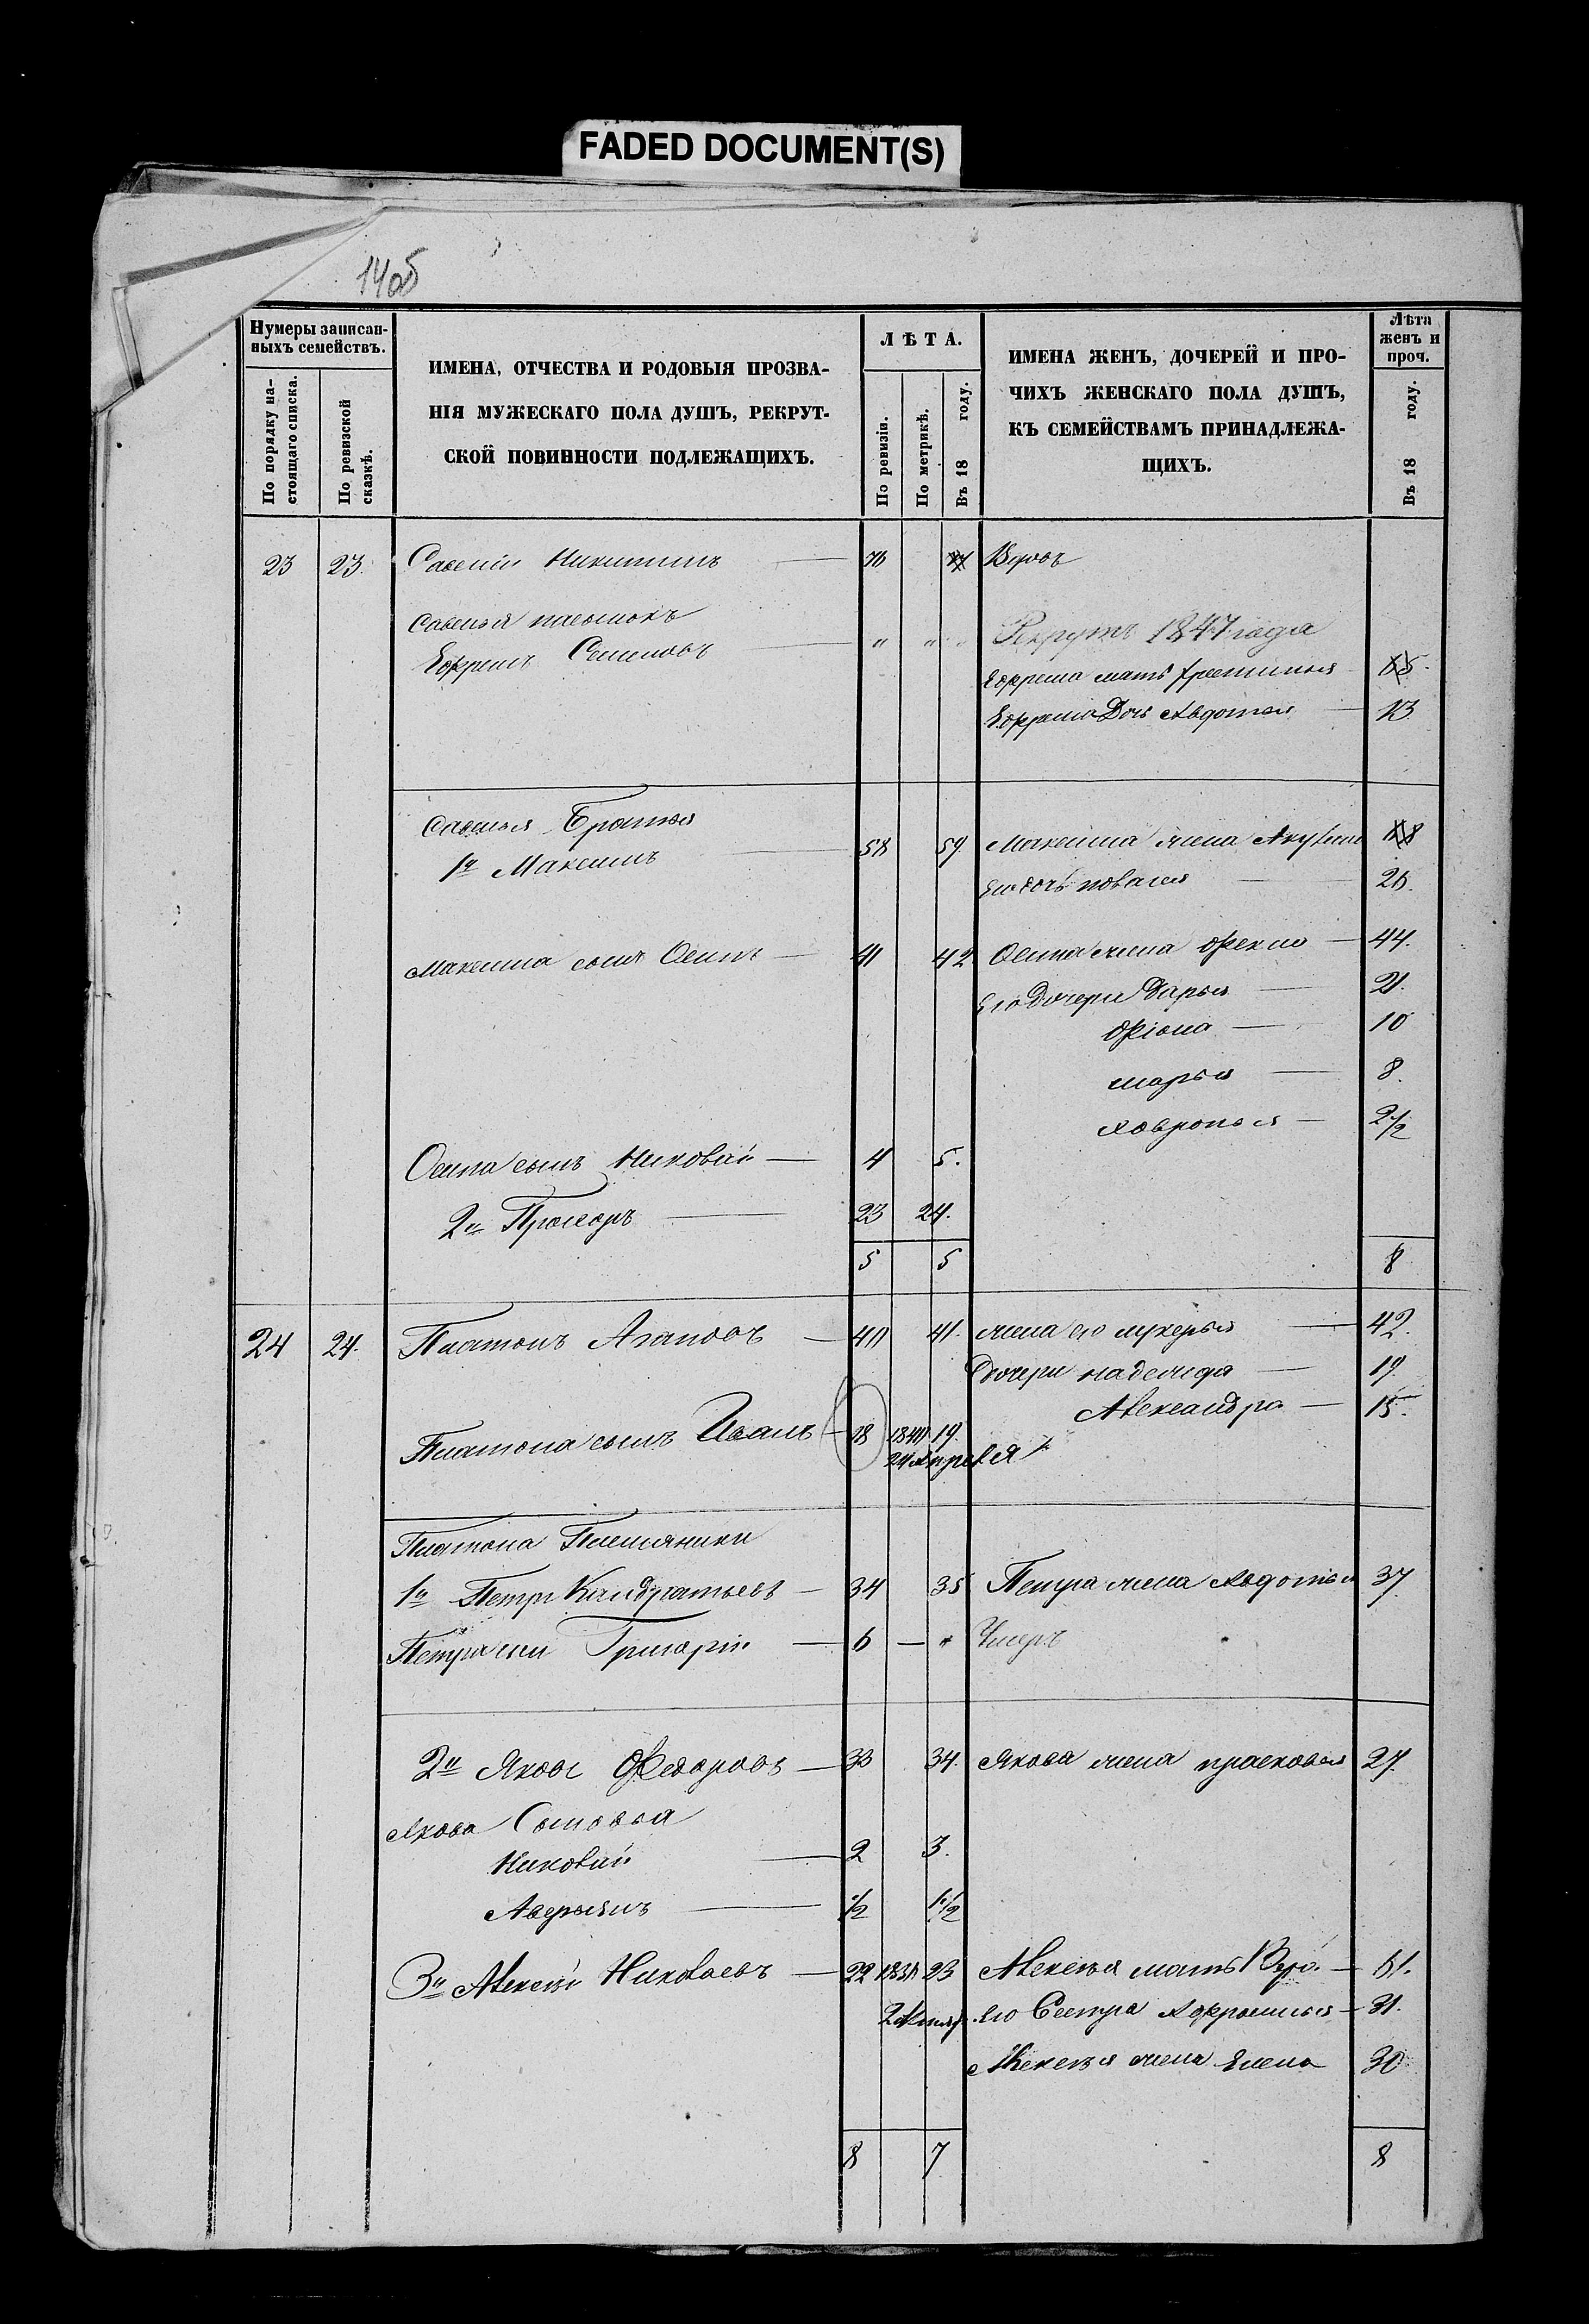 FADED DOCUMENT(S)
14об
Нумеры записан-
ныхъ семействъ.
По порядку на-
стоящаго списка.
По ревизской
сказкѣ.
ИМЕНА, ОТЧЕСТВА И РОДОВЫЯ ПРОЗВА-
НІЯ МУЖЕСКАГО ПОЛА ДУШЪ, РЕКРУТ-
СКОЙ ПОВИННОСТИ ПОДЛЕЖАЩИХЪ.
ЛѢТА.
По ревизіи.
По метрикѣ.
Въ 18 году.
ИМЕНА ЖЕНЪ, ДОЧЕРЕЙ И ПРО-
ЧИХЪ ЖЕНСКАГО ПОЛА ДУШЪ,
КЪ СЕМЕЙСТВАМЪ ПРИНАДЛЕЖА-
ЩИХЪ.
Лѣта
женъ и
проч.
Въ 18 году.
23 23. Савелій Никитинъ — 76 Вдовъ
Савелья пасынокъ
Ефремъ Семеновъ — " " " Рекрутъ 1847 года
Ефрема мать
Ефрема Дочь Авдотья — 13
Савелья Братья
1й Максимъ — 58 59. Максима жена Акулина
Его дочь — 26.
Максима сынъ Осипъ — 41 42 Осипа жена Фекла — 44.
Его Дочери Дарья — 21.
Фіона — 10
марья — 8.
хавронья — 2/2
Осипа сынъ Николай — 4 5.
2й Прохоръ — 23 24.
5 5 8
24 24. Платонъ Агаповъ — 40 41. жена его лукерья — 42.
Дочери надежда — 19.
Александра — 15.
Платона сынъ Иванъ — 18 1840 19.
24 Апреля
Платона Племяники
1й Петръ Кандратьевъ — 34 35 Петра жена Авдотья 37.
Петра сынъ Григорій — 6 — " Умеръ
2й Яковъ Федоровъ — 33 34. Якова жена прасковья 27.
Якова Сыновья
Николай — 2 3.
Аверьянъ — 1/2 1 1/2
3й Алексѣй Николаевъ — 22 23 Алексѣя мать — 61.
Его Сестра Афросинья — 31.
Алексѣя жена Елена 30
8 7 8